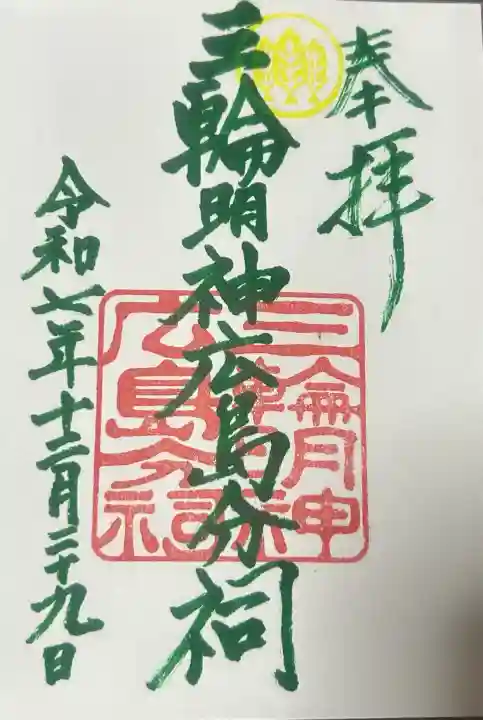 奉拝
三輪明神広島分祠
令和六年十二月二十九日
三輪明神
広島分祠